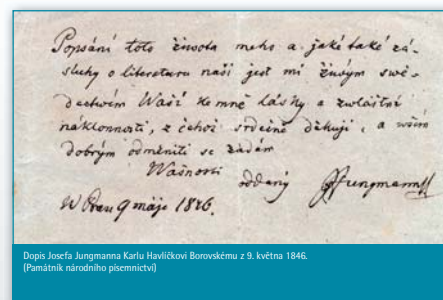 Popsání toto života meho a jaké také zá-
sluhy o literaturu naši jest mi živým swě-
dectwím Waší ke mně lásky a zwláštní
náklonnosti, z čehož srdečně děkuji, a wším
dobrým odměniti se žádám
Wašnosti
oddaný JJungmann
W Praze 9 máje 1846.
Dopis Josefa Jungmanna Karlu Havlíčkovi Borovskému z 9. května 1846.
(Památník národního písemnictví)